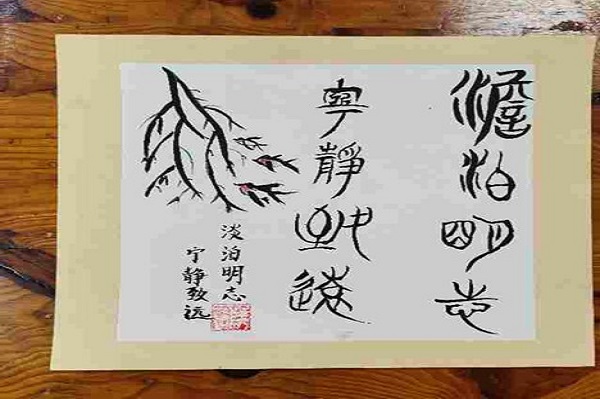 澹泊明志
寧靜致遠
淡泊明志
宁静致远